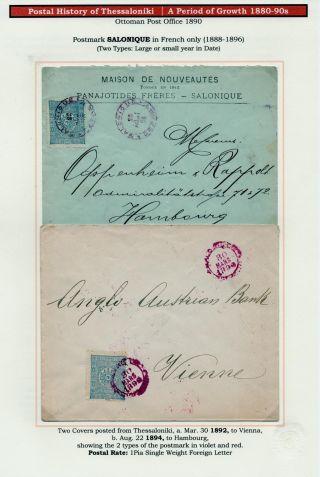 Postal History of Thessaloniki | A Period of Growth 1880-90s
Ottoman Post Office 1890
Postmark SALONIQUE in French only (1888-1896)
(Two Types: Large or small year in Date)
MAISON DE NOUVEAUTÉS
FONDÉE EN 1842
PANAJOTIDES FRÈRES - SALONIQUE
Messieurs
Oppenheim & Rappolt
Admiralitätstrasse 71-72
Hambourg
30
MARS
Anglo-Austrian Bank
30
MARS
Vienne
Two Covers posted from Thessaloniki, a. Mar. 30 1892, to Vienna,
b. Aug. 22 1894, to Hambourg,
showing the 2 types of the postmark in violet and red.
Postal Rate: 1Pia Single Weight Foreign Letter